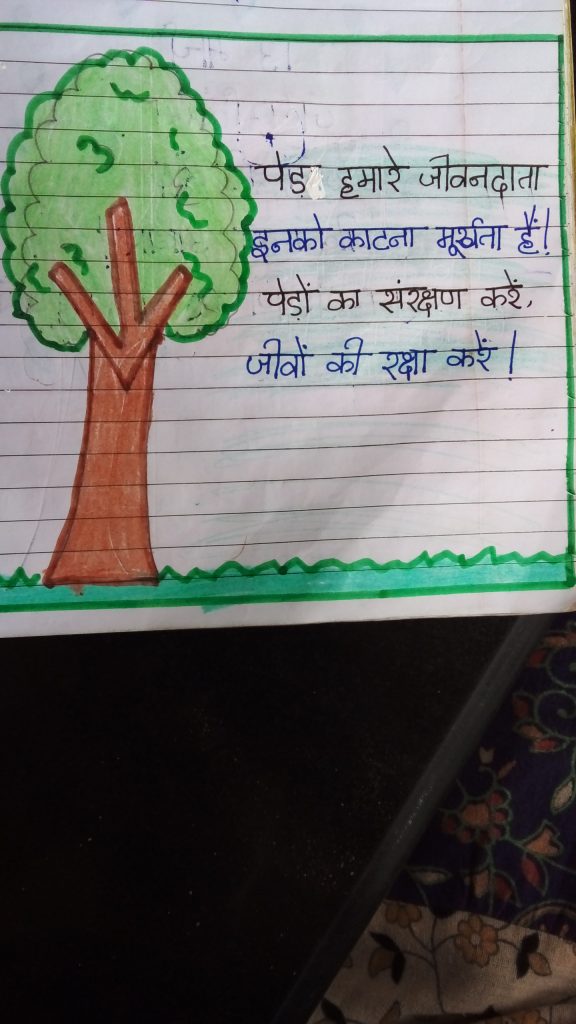 पेड़ हमारे जीवनदाता
इनको काटना मूर्खता हैं!
पेड़ों का संरक्षण करें,
जीवों की रक्षा करें!